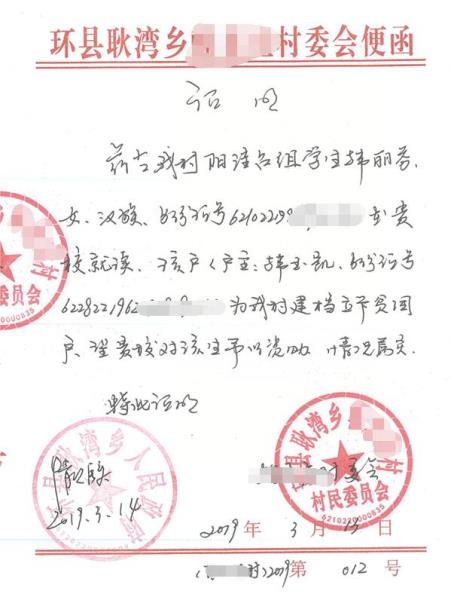 环县耿湾乡 村委会便函
证明
兹有我村阳洼台组学生韩丽蓉.
女、汉族、身份证号621022199 在贵
校就读、该户(户主:韩玉凯、身份证号
6228221962 为我村建档立卡贫困
户、望贵校对该生予以资助 情况属实.
特此证明
村
委员会
6210220000835
环县耿湾乡人民政府
2019.3.14
环县耿湾乡 村
村委会
村民委员会
6210220000835
2019年3月13日
村)2019第 012号